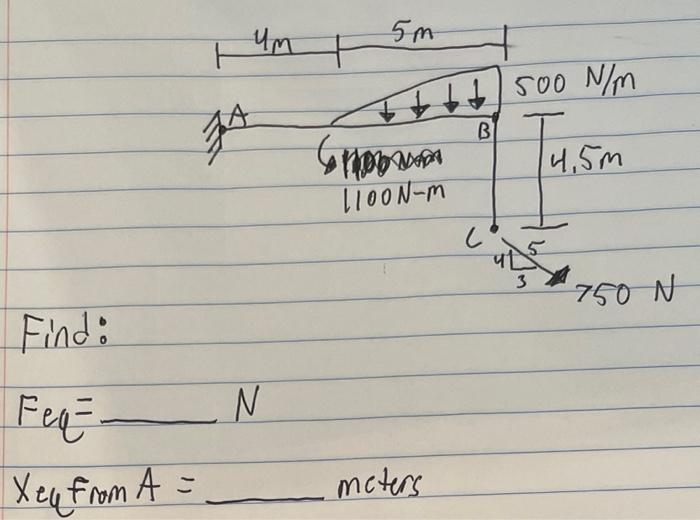 4m 5m
500 N/m
A
B
4.5m
1100N-m
C
4 5
3
750 N
Find:
Feq = ______ N
Xeq from A = ______ meters